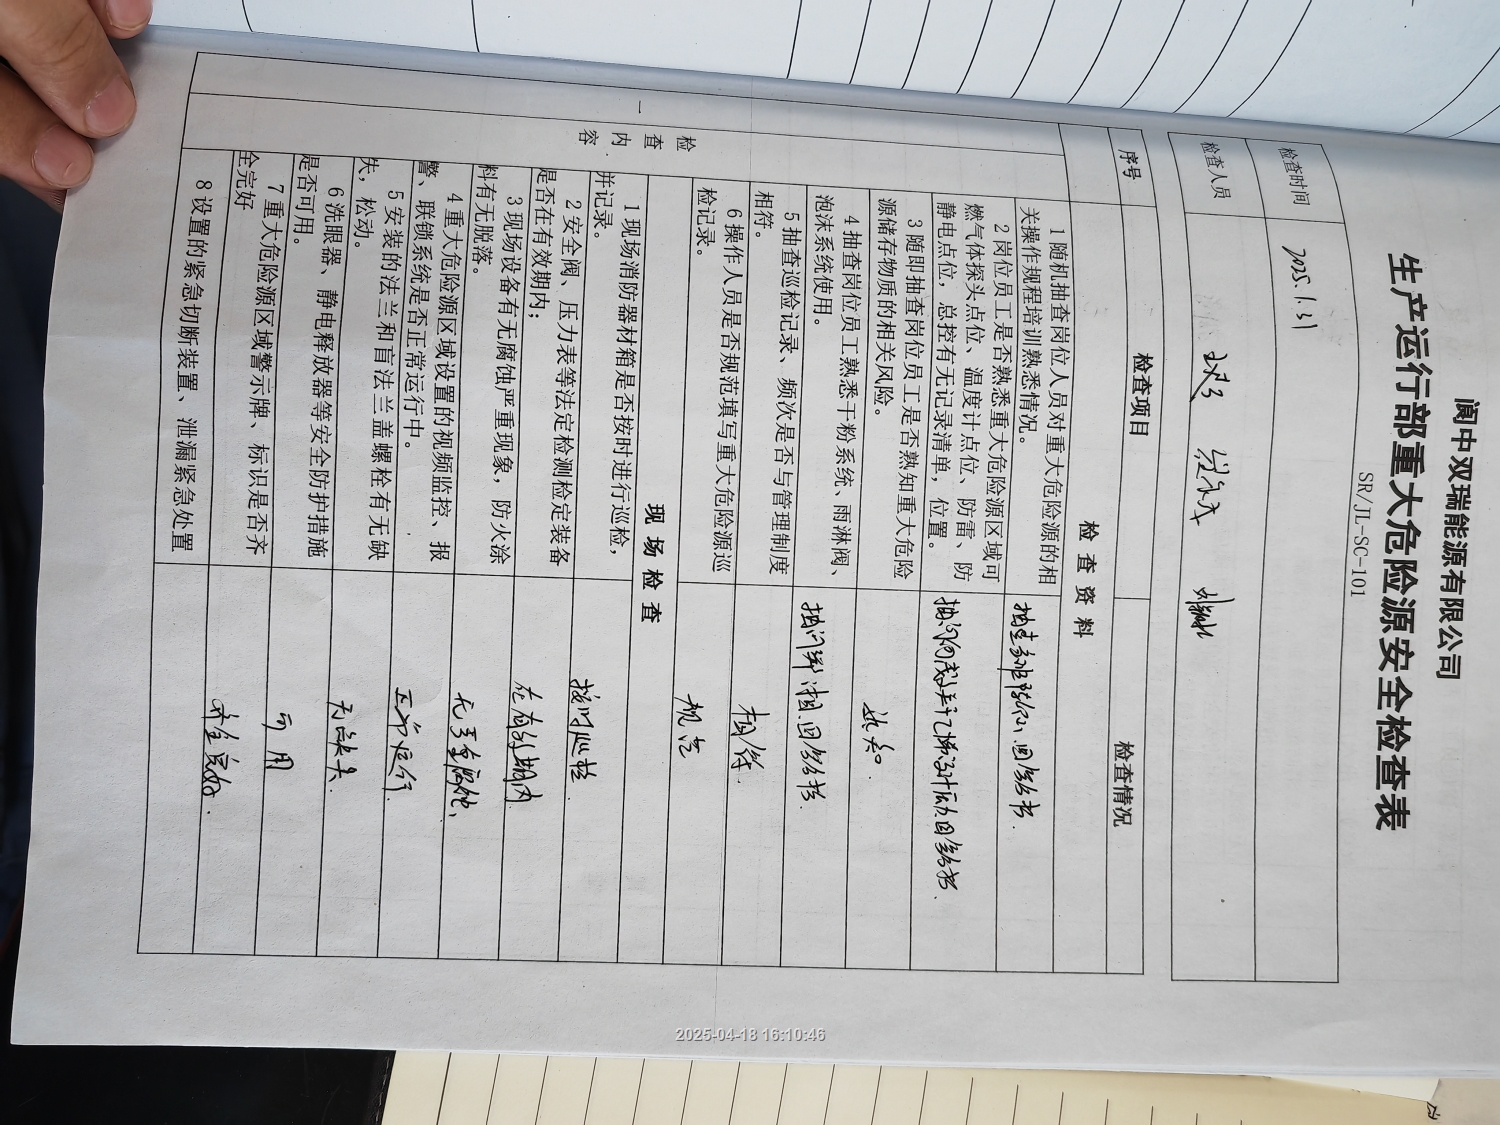 阆中双瑞能源有限公司
生产运行部重大危险源安全检查表
SR/JL-SC-101
检查时间 2025.1.31
检查人员
序号 检查项目 检查情况
一 检查内容
检查资料
1 随机抽查岗位人员对重大危险源的相
关操作规程培训熟悉情况。
2 岗位员工是否熟悉重大危险源区域可
燃气体探头点位、温度计点位、防雷、防
静电点位，总控有无记录清单，位置。
3 随即抽查岗位员工是否熟知重大危险
源储存物质的相关风险。
熟知.
4 抽查岗位员工熟悉干粉系统、雨淋阀、
泡沫系统使用。
5 抽查巡检记录、频次是否与管理制度
相符。
相符.
6 操作人员是否规范填写重大危险源巡
检记录。
规范
现场检查
1 现场消防器材箱是否按时进行巡检，
并记录。
按时巡检.
2 安全阀、压力表等法定检测检定装备
是否在有效期内；
在有效期内.
3 现场设备有无腐蚀严重现象，防火涂
料有无脱落。
无严重腐蚀.
4 重大危险源区域设置的视频监控、报
警、联锁系统是否正常运行中。
正常运行.
5 安装的法兰和盲法兰盖螺栓有无缺
失，松动。
无缺失.
6 洗眼器、静电释放器等安全防护措施
是否可用。
可用
7 重大危险源区域警示牌、标识是否齐
全完好
齐全完好.
8 设置的紧急切断装置、泄漏紧急处置
2025-04-18 16:10:46